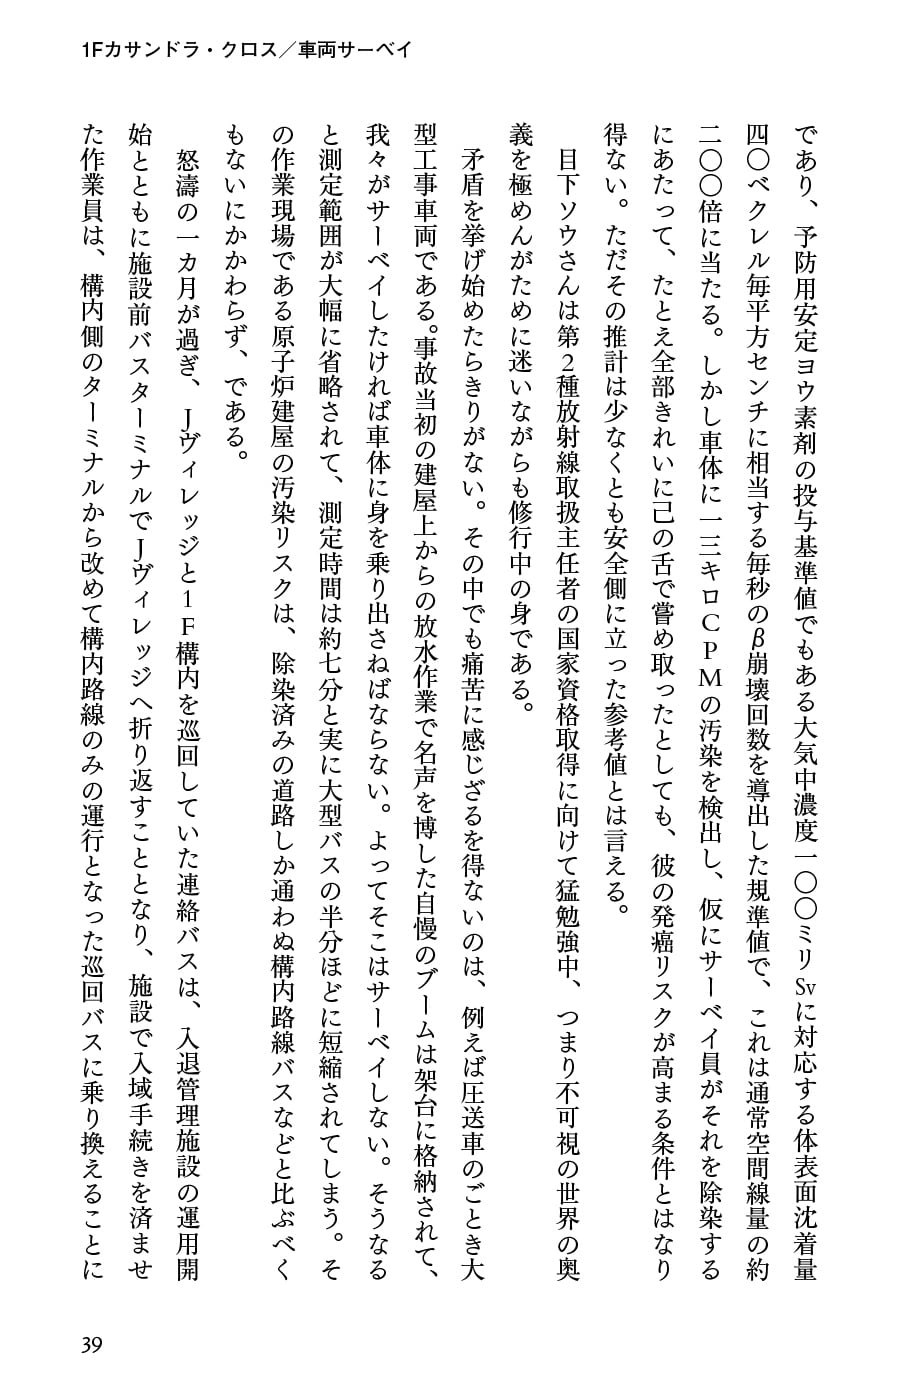 1Fカサンドラ・クロス／車両サーベイ
であり、予防用安定ヨウ素剤の投与基準値でもある大気中濃度一〇〇ミリSvに対応する体表面沈着量
四〇ベクレル毎平方センチに相当する毎秒のβ崩壊回数を導出した規準値で、これは通常空間線量の約
二〇〇倍に当たる。しかし車体に一三キロCPMの汚染を検出し、仮にサーベイ員がそれを除染する
にあたって、たとえ全部きれいに己の舌で嘗め取ったとしても、彼の発癌リスクが高まる条件とはなり
得ない。ただその推計は少なくとも安全側に立った参考値とは言える。
目下ソウさんは第2種放射線取扱主任者の国家資格取得に向けて猛勉強中、つまり不可視の世界の奥
義を極めんがために迷いながらも修行中の身である。
矛盾を挙げ始めたらきりがない。その中でも痛苦に感じざるを得ないのは、例えば圧送車のごとき大
型工事車両である。事故当初の建屋上からの放水作業で名声を博した自慢のブームは架台に格納されて、
我々がサーベイしたければ車体に身を乗り出さねばならない。よってそこはサーベイしない。そうなる
と測定範囲が大幅に省略されて、測定時間は約七分と実に大型バスの半分ほどに短縮されてしまう。そ
の作業現場である原子炉建屋の汚染リスクは、除染済みの道路しか通わぬ構内路線バスなどと比ぶべく
もないにかかわらず、である。
怒濤の一カ月が過ぎ、Jヴィレッジと1F構内を巡回していた連絡バスは、入退管理施設の運用開
始とともに施設前バスターミナルでJヴィレッジへ折り返すこととなり、施設で入域手続きを済ませ
た作業員は、構内側のターミナルから改めて構内路線のみの運行となった巡回バスに乗り換えることに
39